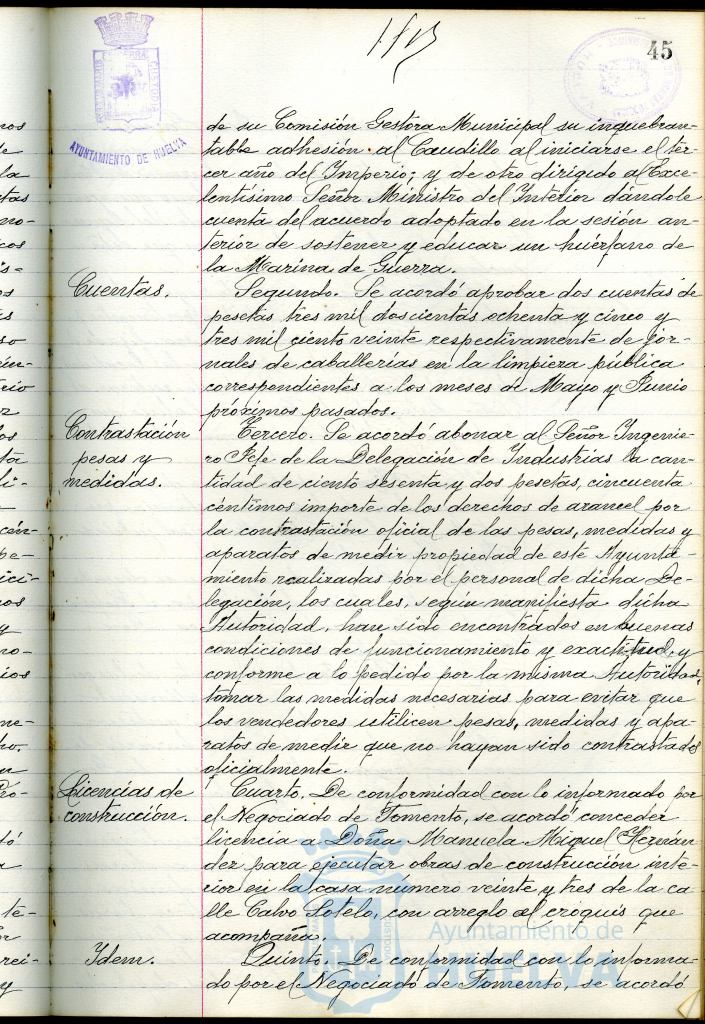 45
AYUNTAMIENTO DE HUELVA
de su Comisión Gestora Municipal su inquebran-
table adhesión al Caudillo al iniciarse el ter-
cer año del Imperio; y de otro dirigido al Exce-
lentísimo Señor Ministro del Interior dándole
cuenta del acuerdo adoptado en la sesión an-
terior de sostener y educar un huérfano de
la Marina de Guerra.
Cuentas.
Segundo. Se acordó aprobar dos cuentas de
pesetas tres mil doscientas ochenta y cinco y
tres mil ciento veinte respectivamente de jor-
nales de caballerías en la limpieza pública
correspondientes a los meses de Mayo y Junio
próximos pasados.
Contrastación
pesas y
medidas.
Tercero. Se acordó abonar al Señor Ingenie-
ro Jefe de la Delegación de Industrias la can-
tidad de ciento sesenta y dos pesetas, cincuenta
céntimos importe de los derechos de arancel por
la contrastación oficial de las pesas, medidas y
aparatos de medir propiedad de este Ayunta-
miento realizadas por el personal de dicha De-
legación, los cuales, según manifiesta dicha
Autoridad, han sido encontrados en buenas
condiciones de funcionamiento y exactitud, y
conforme a lo pedido por la misma Autoridad,
tomar las medidas necesarias para evitar que
los vendedores utilicen pesas, medidas y apa-
ratos de medir que no hayan sido contrastados
oficialmente.
Licencias de
construcción.
Cuarto. De conformidad con lo informado por
el Negociado de Fomento, se acordó conceder
licencia a Doña Manuela Miguel Hernán
dez para ejecutar obras de construcción inte-
rior en la casa número veinte y tres de la ca
lle Calvo Sotelo, con arreglo al croquis que
acompaña.
Idem.
Quinto. De conformidad con lo informa-
do por el Negociado de Fomento, se acordó
Ayuntamiento de
HUELVA